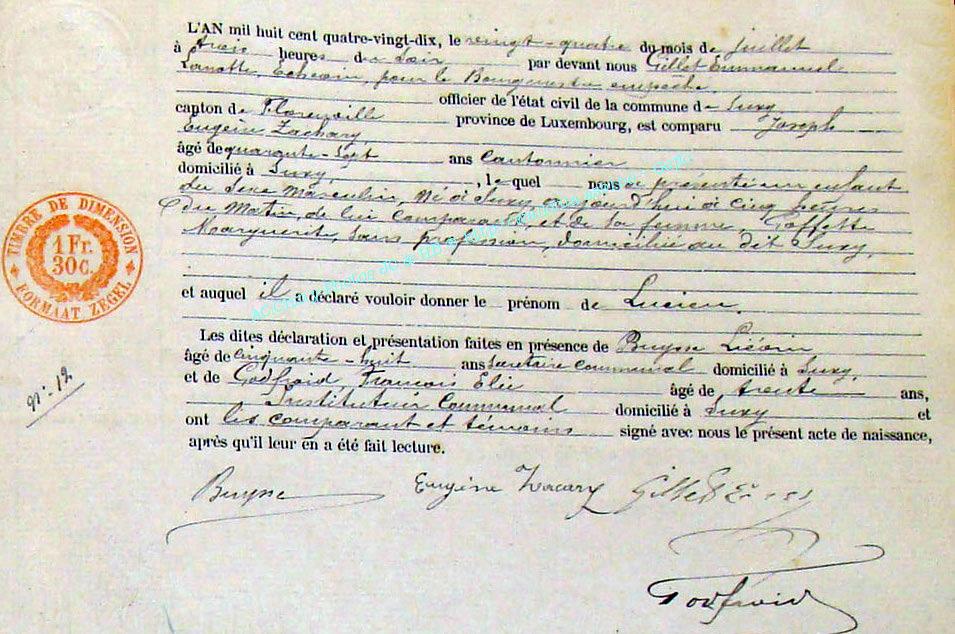 L'AN mil huit cent quatre-vingt-dix, le vingt-quatre du mois de juillet
à trois heures du soir par devant nous Gillet Emmanuel
Echevin, pour le Bourgmestre empêché
officier de l'état civil de la commune de Suxy
canton de Florenville province de Luxembourg, est comparu Joseph
Eugein Zachary
âgé de quarante-sept ans Cantonnier
domicilié à Suxy, le quel nous a présenté un enfant
du sexe masculin, né à Suxy, aujourd'hui à cinq heures
du matin, de lui comparant, et de sa femme, Goffette
Marguerite, sans profession, domiciliée au dit Suxy,
et auquel il a déclaré vouloir donner le prénom de Lucien.
Les dites déclaration et présentation faites en présence de Buysse Liévin
âgé de cinquante-huit ans secrétaire communal domicilié à Suxy,
et de Godfroid, François Elie âgé de trente ans,
Instituteur Communal domicilié à Suxy et
ont les comparant et témoins signé avec nous le présent acte de naissance,
après qu'il leur en a été fait lecture.
TIMBRE DE DIMENSION
1 Fr.
30 c.
FORMAAT ZEGEL
N°: 12
Buysse Eugène Zacary Gillet
Godfroid